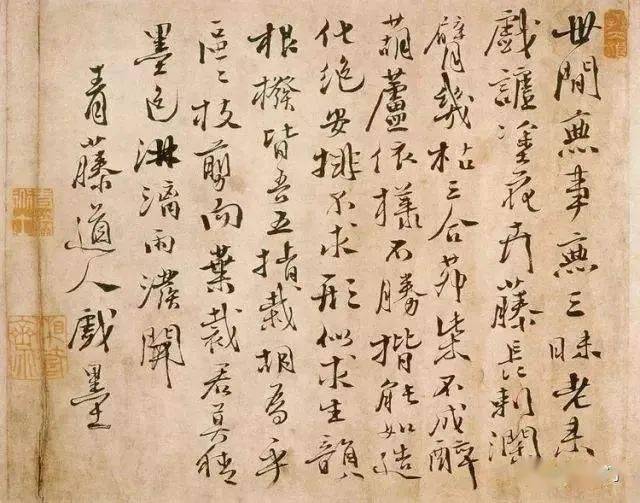 世間無事無三昧老来
戲謔塗花卉藤長刺闊
臂幾枯三合茆柴不成醉
葫蘆依樣不勝揩能如造
化絶安排不求形似求生韻
根撥皆吾五指栽胡為乎
區〻枝剪而葉裁君莫猜
墨色淋漓雨潑開
青藤道人戲墨